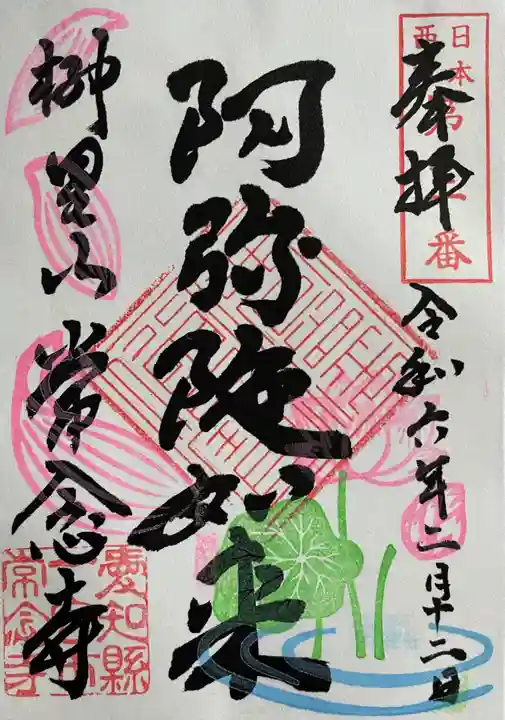 奉拝
令和六年二月十二日
阿弥陀如来
榊里山 常念寺
愛知縣
常念寺